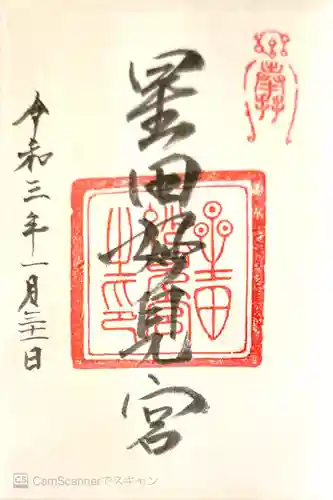 星田妙見宮
令和三年一月三十一日
CS CamScannerでスキャン